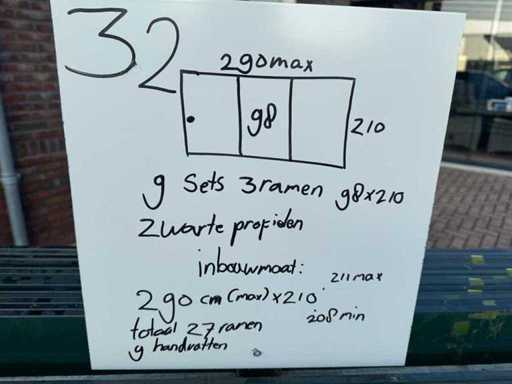 32
290max
98
210
9 Sets 3ramen 98x210
Zwarte profielen
inbouwmaat:
211 max
290 cm (max) x 210
208 min
totaal 27 ramen
9 handvatten